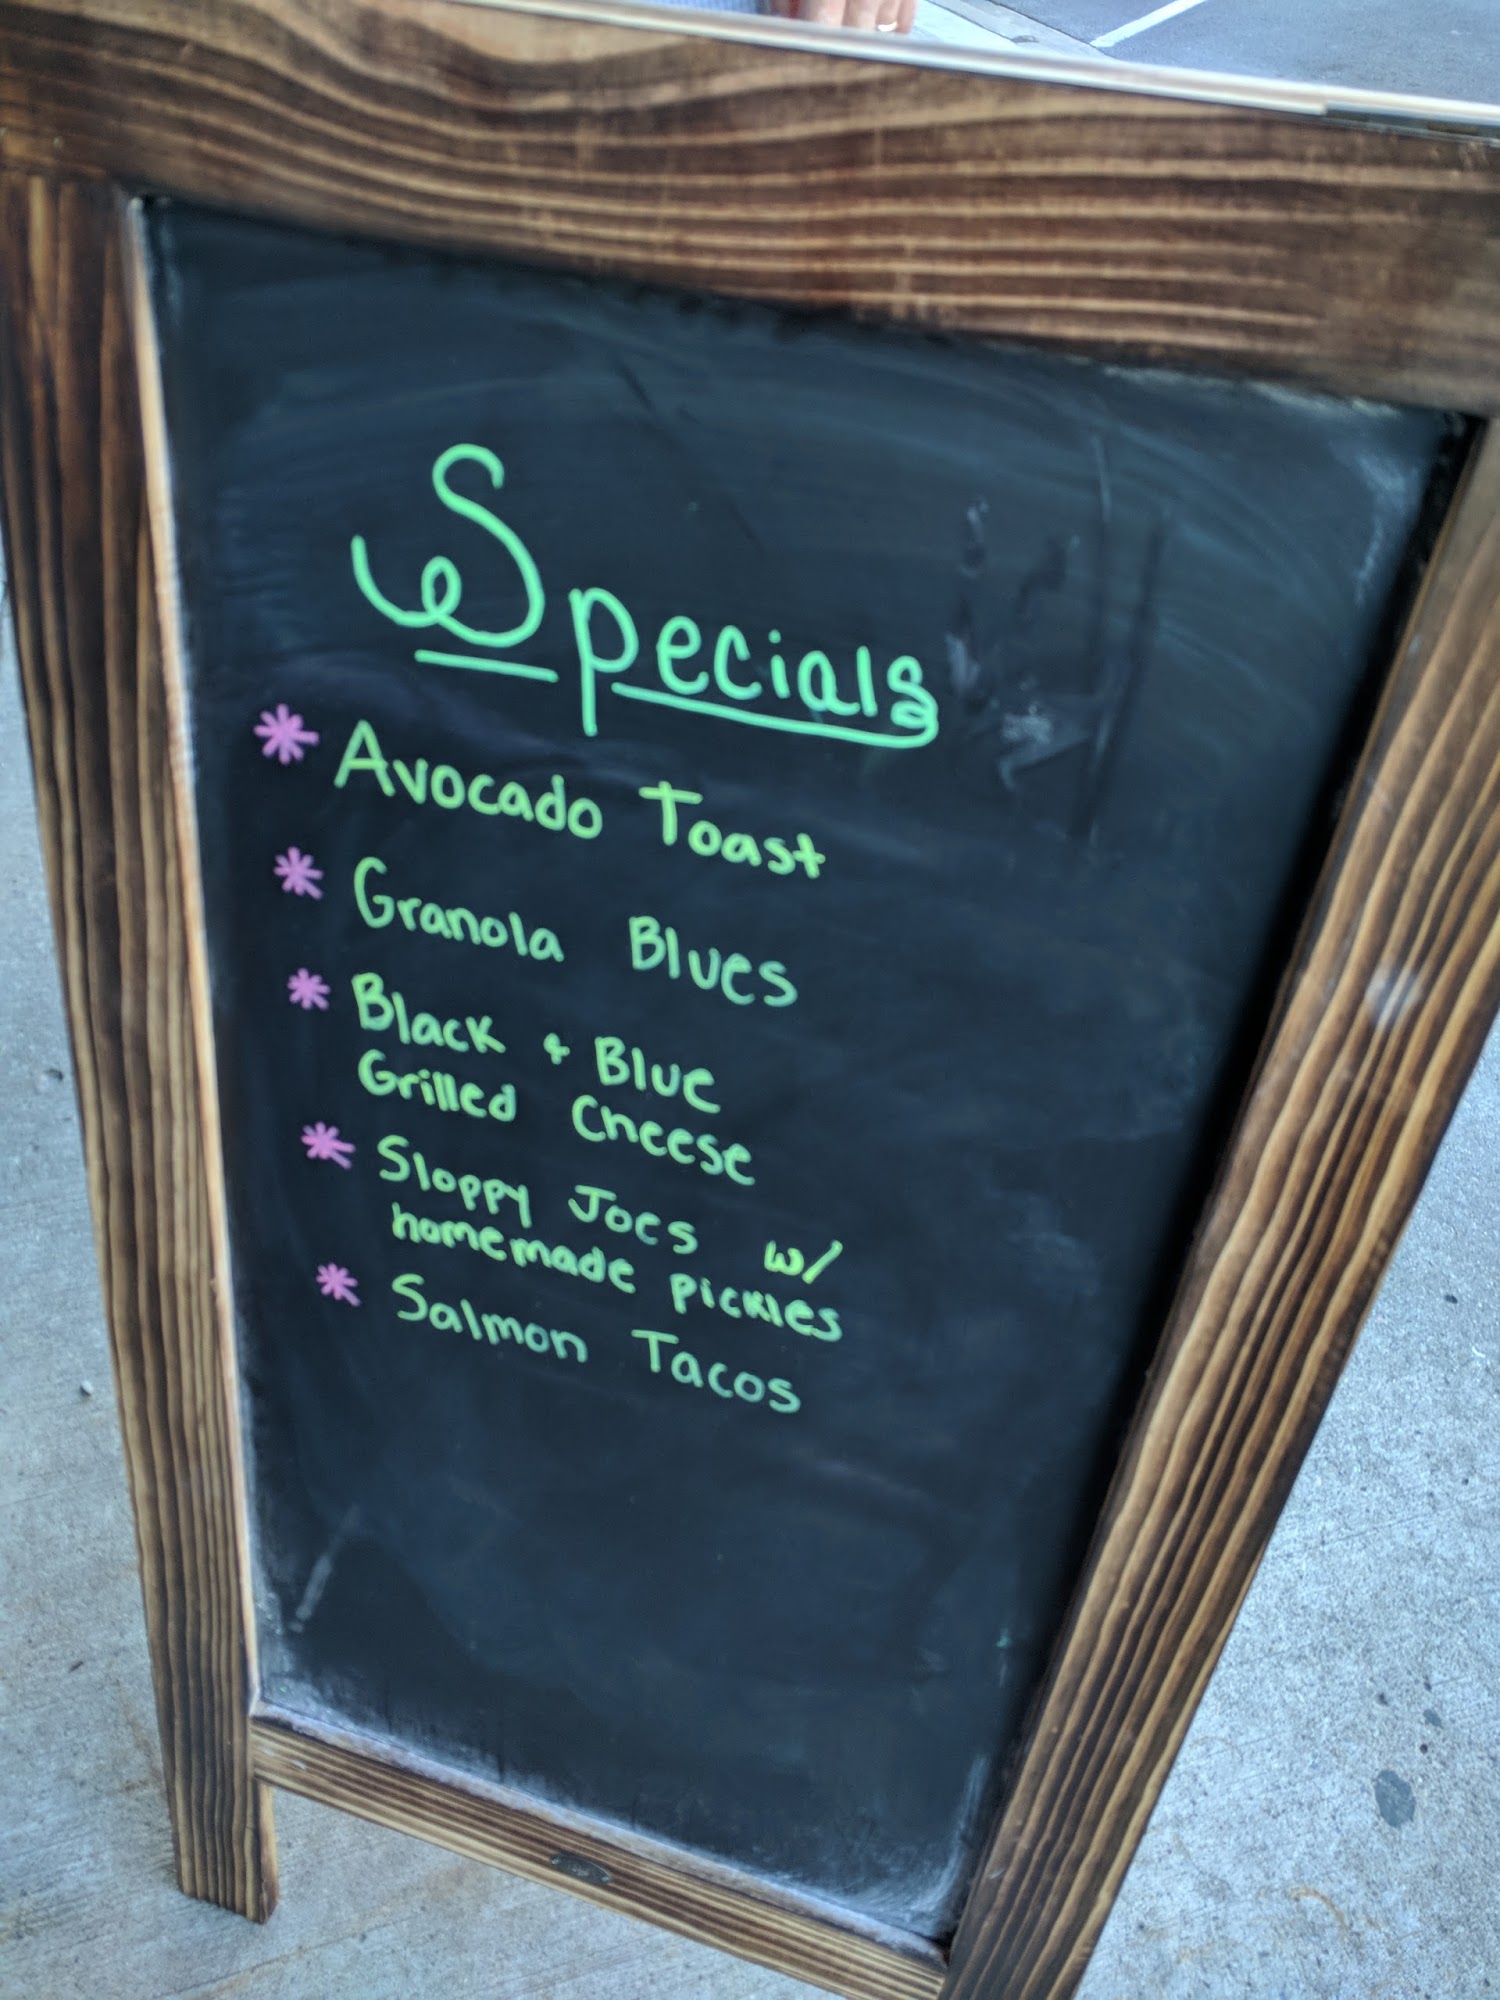 Specials
* Avocado Toast
* Granola Blues
* Black + Blue
Grilled Cheese
* Sloppy Joes w/
homemade pickles
* Salmon Tacos